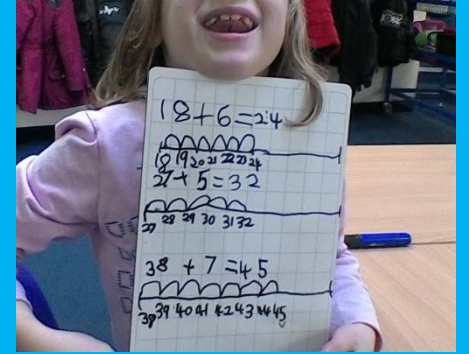 18+6=24
18 19 20 21 22 23 24
27+5=32
27 28 29 30 31 32
38+7=45
38 39 40 41 42 43 44 45